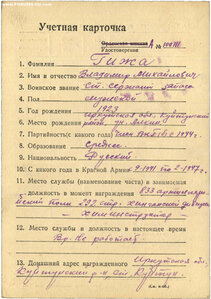 Учетная карточка
Ордeнскoй книжки А №
Удостоверения
1. Фамилия Гижа
2. Имя и отчество Владимир Михайлович
3. Воинское звание Ст. сержант запаса
4. Пол мужской
5. Год рождения 1923
6. Место рождения Иркутская обл. Куйтунский
7. Партийность (с какого года) член ВКП(б) 1944г.
8. Образование Среднее
9. Национальность Русский
10. С какого года в Красной Армии 9-1941 по 2-1947г.
11. Место службы (наименование части) и занимаемая
должность в момент награждения 833 артиллерий-
ский полк 292 стр. Хинганской дивизии
- химинструктор
12. Место службы и должность в настоящее время
Вр. не работает
13. Домашний адрес награжденного Иркутская обл.
Куйтунский р-н ст. Куйтун